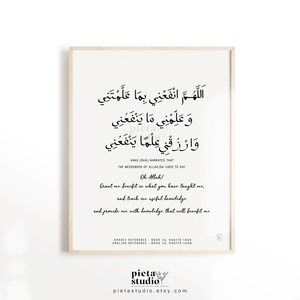 اَللّٰهُمَّ انْفَعْنِي بِمَا عَلَّمْتَنِي
وَعَلِّمْنِي مَا يَنْفَعُنِي
وَارْزُقْنِي عِلْمًا يَنْفَعُنِي
ANAS (RAA) NARRATED THAT
THE MESSENGER OF ALLAH, USED TO SAY
Oh Allah!
Grant me benefit in what you have taught me,
and teach me useful knowledge
and provide me with knowledge that will benefit me
ARABIC REFERENCE : BOOK 16, HADITH
ENGLISH REFERENCE : BOOK 16, HADITH
pieta
studio
pietastudio.etsy.com